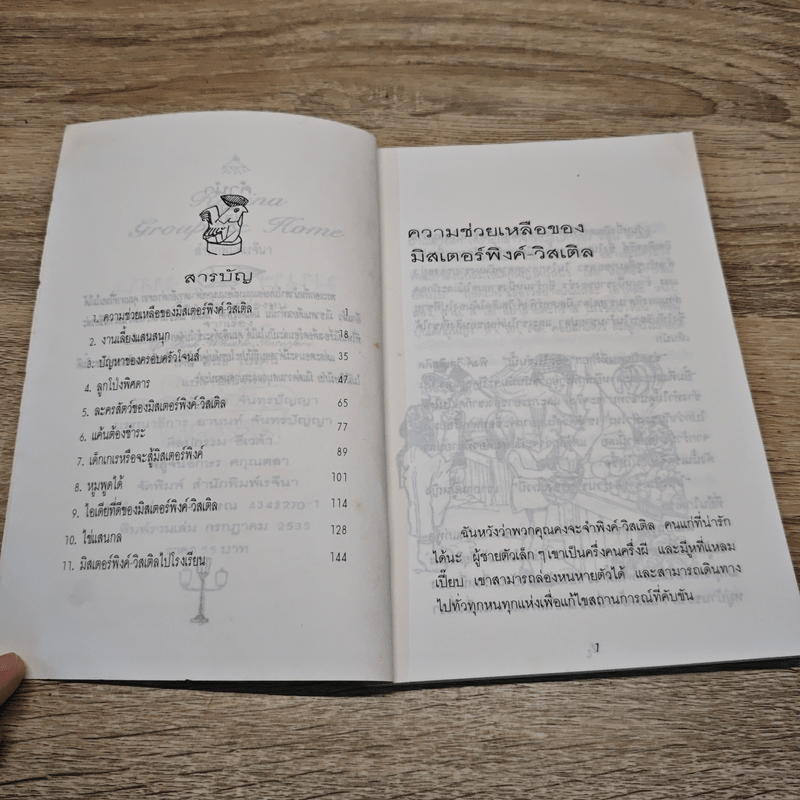 สารบัญ
1. ความช่วยเหลือของมิสเตอร์พิงค์-วิสเติล 1
2. งานเลี้ยงแสนสนุก 18
3. ปัญหาของครอบครัวโจนส์ 35
4. ลูกโป่งพิศดาร 47
5. ละครสัตว์ของมิสเตอร์พิงค์-วิสเติล 65
6. แค้นต้องชำระ 77
7. เด็กเกเรหรือจะสู้มิสเตอร์พิงค์ 89
8. หูมพูดได้ 101
9. ไอเดียที่ดีของมิสเตอร์พิงค์-วิสเติล 114
10. ไข่แสนกล 128
11. มิสเตอร์พิงค์-วิสเติลไปโรงเรียน 144
ความช่วยเหลือของ
มิสเตอร์พิงค์-วิสเติล
ฉันหวังว่าพวกคุณคงจะจำพิงค์-วิสเติล คนแก่ที่น่ารัก
ได้นะ ผู้ชายตัวเล็ก ๆ เขาเป็นครึ่งคนครึ่งผี และมีหูที่แหลม
เปี๊ยบ เขาสามารถล่องหนหายตัวได้ และสามารถเดินทาง
ไปทั่วทุกหนทุกแห่งเพื่อแก้ไขสถานการณ์ที่คับขัน
1